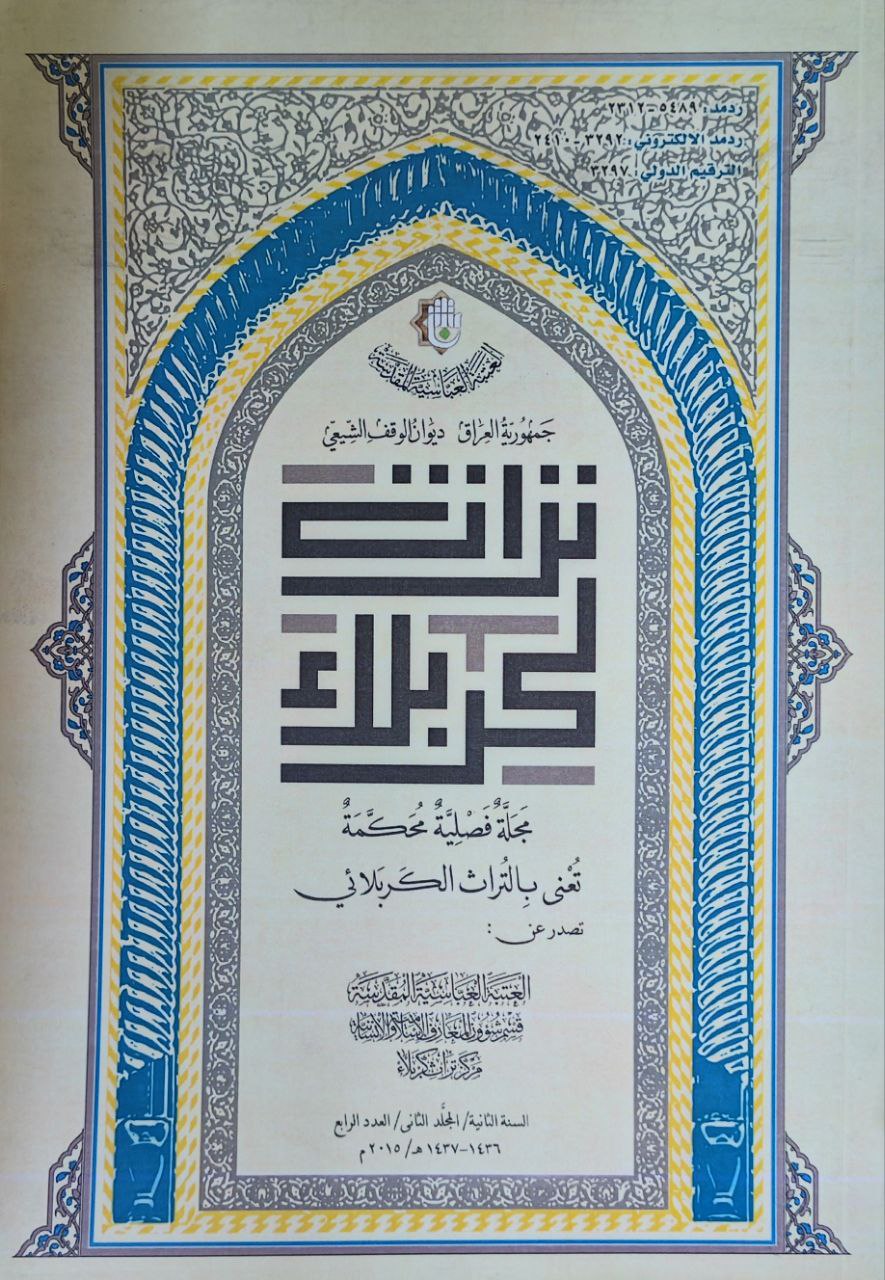 ردمد: ٥٤٨٩-٢٣١٢
ردمد الالكتروني: ٣٢٩٢-٢٤١٠
الترقيم الدولي: ٣٢٩٧
العتبة العباسية المقدسة
جَمهُوريّة العِراق ديوَان الوقف الشِيعيّ
تراث
كربلاء
مَجَلَّةٌ فَصْلِيَّةٌ مُحَكَّمَةٌ
تُعْنى بِالتُراث الكَربَلائي
تصدر عن :
العتبة العباسية المقدسة
قسم شؤون المعارف الإسلامية والإنسانية
مركز تراث كربلاء
السنة الثانية/ المجلَّد الثانى/ العدد الرابع
١٤٣٦-١٤٣٧ هـ/ ٢٠١٥ م